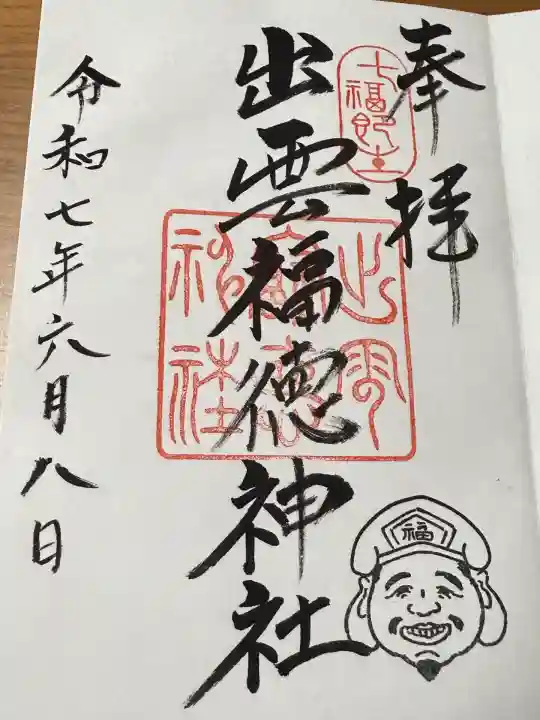 奉拝
七福即生
出雲福徳神社
出雲福徳神社
令和七年六月八日
福